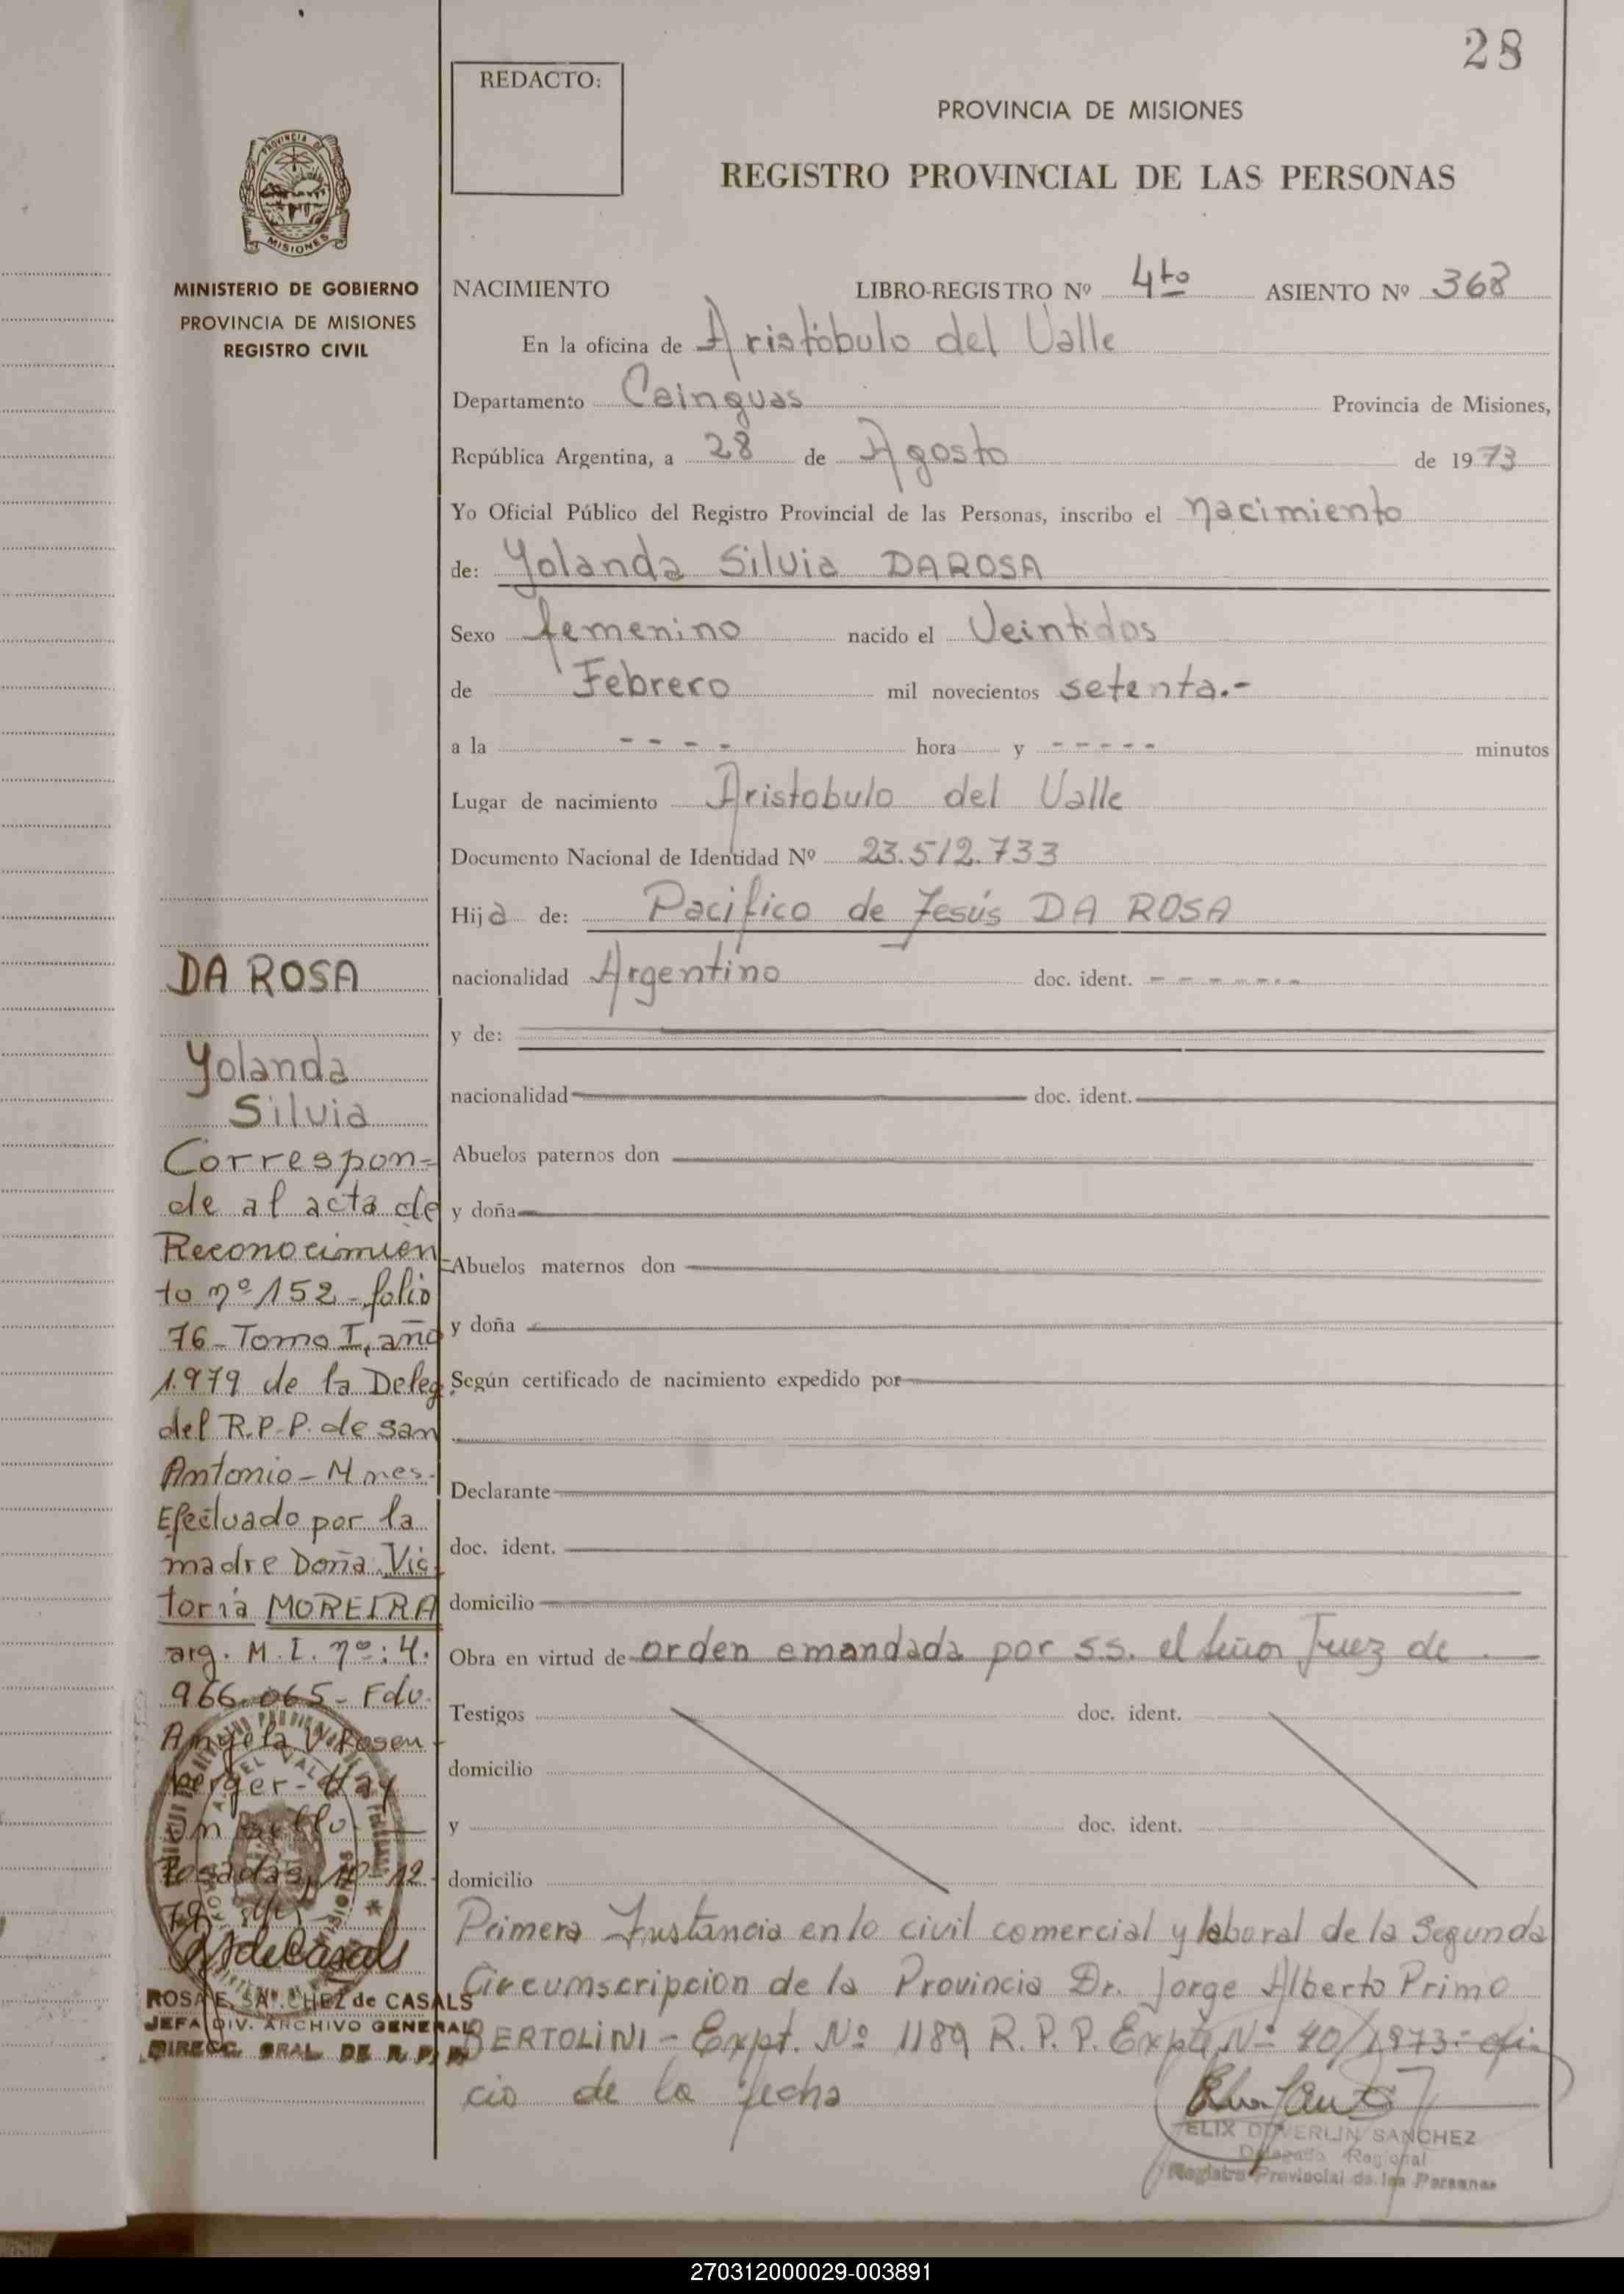 28
REDACTO:
PROVINCIA DE MISIONES
REGISTRO PROVINCIAL DE LAS PERSONAS
PROVINCIA DE
MISIONES
MINISTERIO DE GOBIERNO
PROVINCIA DE MISIONES
REGISTRO CIVIL
NACIMIENTO LIBRO-REGISTRO Nº 4to ASIENTO Nº 368
En la oficina de Aristóbulo del Valle
Departamento Cainguas Provincia de Misiones,
República Argentina, a 28 de Agosto de 1973
Yo Oficial Público del Registro Provincial de las Personas, inscribo el nacimiento
de: Yolanda Silvia DAROSA
Sexo femenino nacido el Veintidos
de Febrero mil novecientos setenta.-
a la - - - - hora y - - - - - minutos
Lugar de nacimiento Aristobulo del Valle
Documento Nacional de Identidad Nº 23.512.733
Hija de: Pacifico de Jesús DA ROSA
nacionalidad Argentino doc. ident. - - - - - - -
y de:
nacionalidad doc. ident.
Abuelos paternos don
y doña
Abuelos maternos don
y doña
Según certificado de nacimiento expedido por
Declarante
doc. ident.
domicilio
Obra en virtud de orden emandada por s.s. el señor Juez de
Testigos doc. ident.
domicilio
y doc. ident.
domicilio
Primera Instancia en lo civil comercial y laboral de la Segunda
Circumscripcion de la Provincia Dr. Jorge Alberto Primo
BERTOLINI - Expt. Nº 1189 R. P. P. Expte Nº 40/1973.- ofi-
cio de la fecha
ELIX DUVERLIN SANCHEZ
Delegado Regional
Registro Provincial de las Personas
DA ROSA
Yolanda
Silvia
Correspon-
de al acta de
Reconocimien-
to nº 152 - folio
76 - Tomo I, año
1.979 de la Deleg.
del R.P.P. de San
Antonio - Mnes.
Efectuado por la
madre Doña Vic-
toria MOREIRA
arg. M. I. nº: 4.
966.065 - Fdo.
Angela V. Rosen-
berger - Hay
un sello.
Posadas, 10-12-
79
ROSA E. SANCHEZ de CASALS
JEFA DIV. ARCHIVO GENERAL
DIRECC. GRAL. DE R. P. P.
270312000029-003891